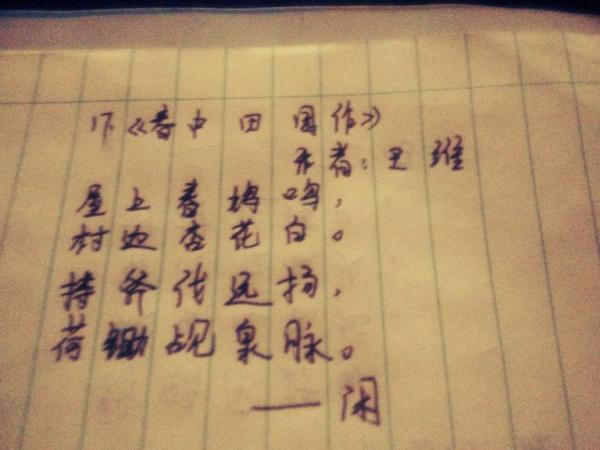 17《春中田园作》
作者:王维
屋上春鸠鸣,
村边杏花白。
持斧伐远扬,
荷锄觇泉脉。
——闲